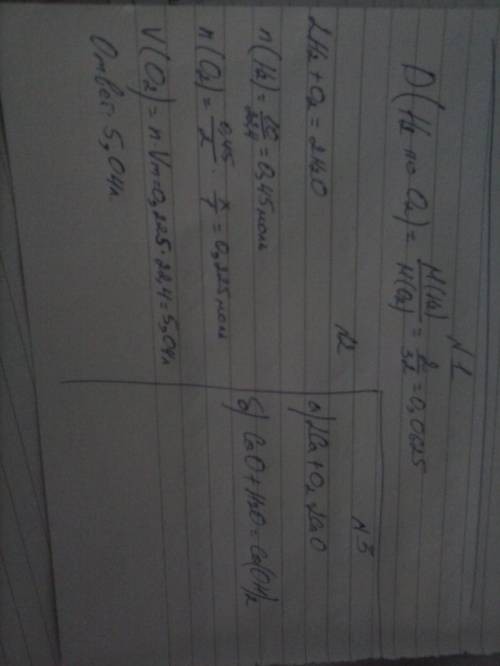 N1
D(H₂ по O₂) = M(H₂)/M(O₂) = 2/32 = 0,0625
N2
2H₂ + O₂ = 2H₂O
n(H₂) = 10/22,4 = 0,45 моль
n(O₂) = 0,45/2 · 1/1 = 0,225 моль
V(O₂) = n·Vm = 0,225·22,4 = 5,04л
Ответ: 5,04л
N3
а) 2Ca + O₂ 2CaO
б) CaO + H₂O = Ca(OH)₂